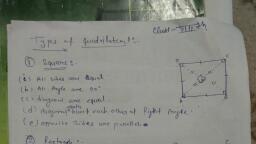 Class - VIII
Types of Quadrilateral:
① Square:
(a) All sides are equal
(b) All Angle are 90°
(c) diagonal are equal
(d) each other at Right Angle.
(e) opposite sides are parallel.